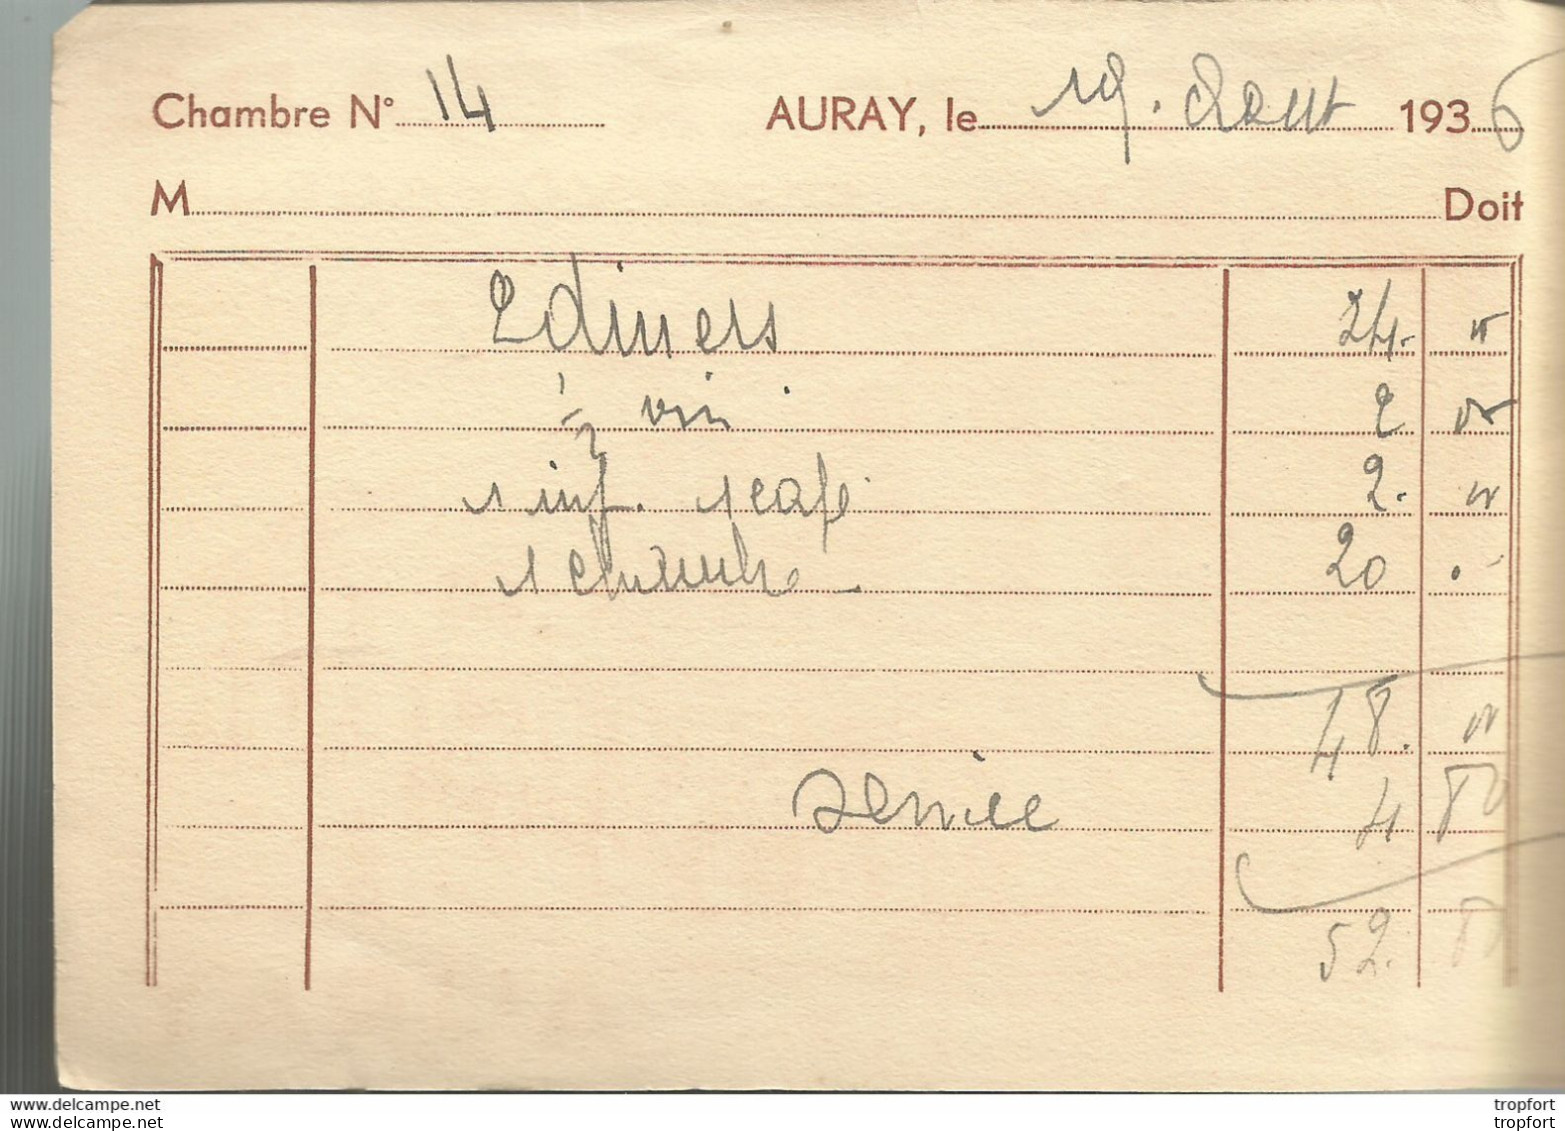 Chambre N° 14 AURAY, le 19. Aout 1936
M Doit
2 diners 24. "
1/2 vin 2 "
1 inf. 1 café 2. "
1 chambre 20 .
48. "
service 4 80
52. 80
www.delcampe.net tropfort
www.delcampe.net tropfort